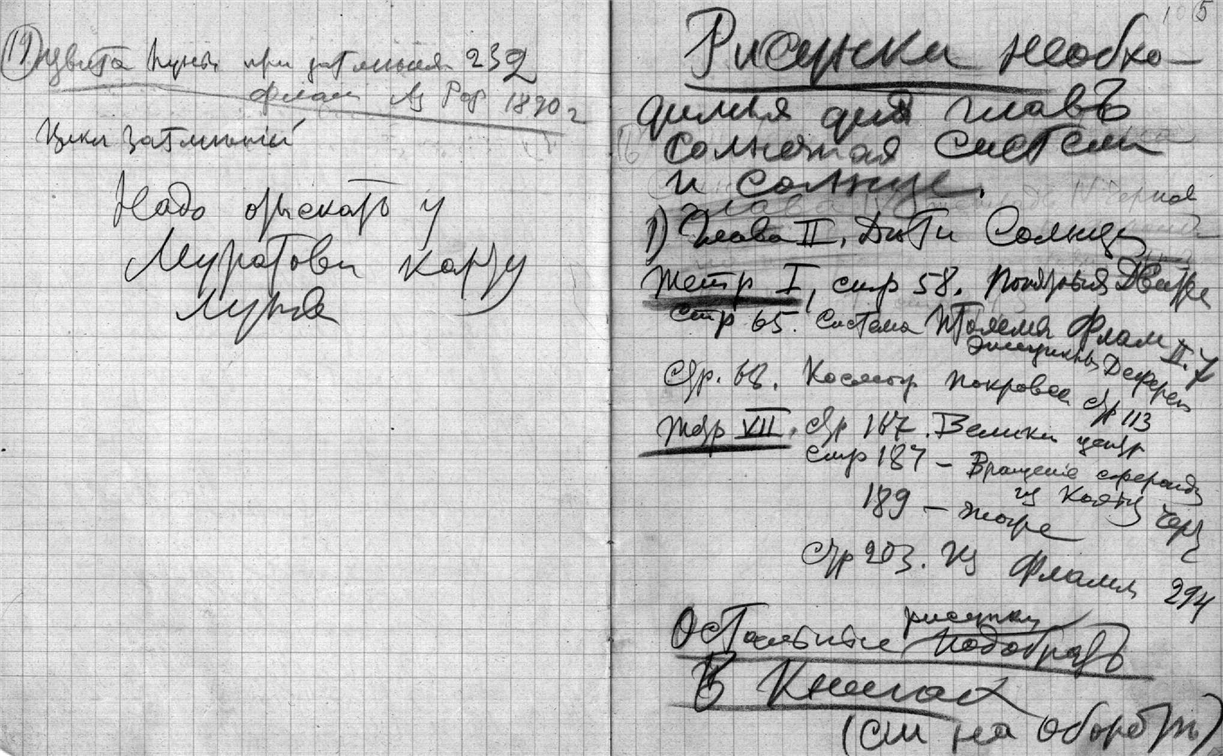 19) цвета Луны при затмении 232
Флам Из 1890 г
Цикл затмений
Надо отыскать у
Муратова карту
Луны
105
Рисунки необхо-
димыя для главъ
Солнечная система
и солнце.
1) Глава II. Дѣти Солнца
Тетр I, стр 58.
Стр 65. Система Птолемея Флам II. 7
Эпициклы Деферент
Стр. 68. Покровск стр 113
Тетр VII. стр 167. Велики центр
стр 187 – Вращение сфероида
из
189 – тоже
Стр 203. Из Фламм 294
рисунки
Остальные подобрать
В Книгах
(см на оборотѣ)